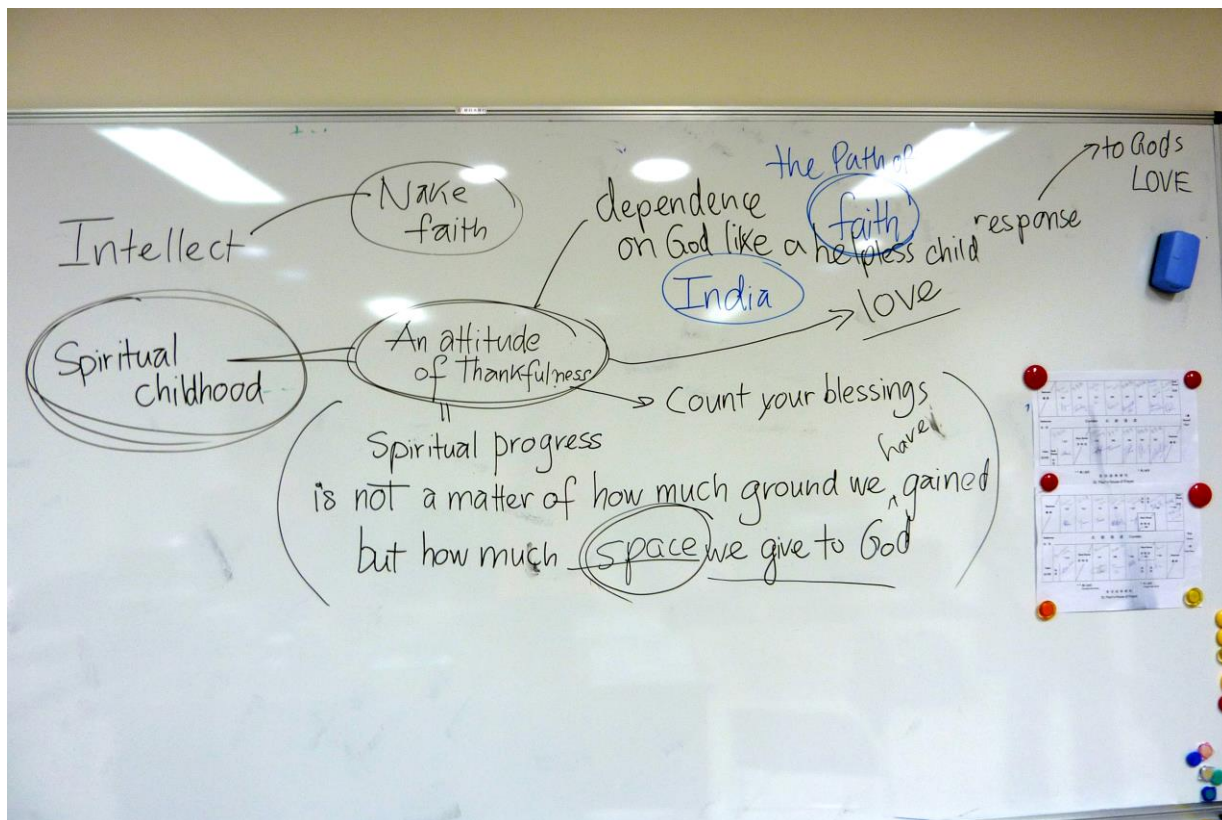 Intellect
Nake
faith
the Path of
faith
India
dependence
on God like a helpless child
response
to Gods
LOVE
love
Spiritual
childhood
An attitude
of Thankfulness
Count your blessings
Spiritual progress
is not a matter of how much ground we have gained
but how much space we give to God